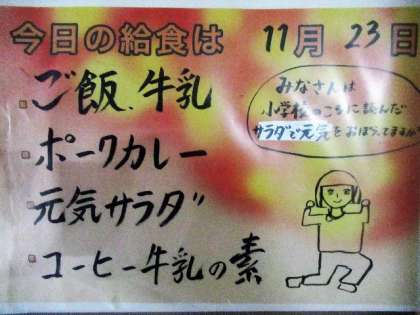 今日の給食は 11月 23日
ご飯、牛乳
ポークカレー
元気サラダ
コーヒー牛乳の素
みなさんは
小学校のころに読んだ
サラダで元気をおぼえてますか